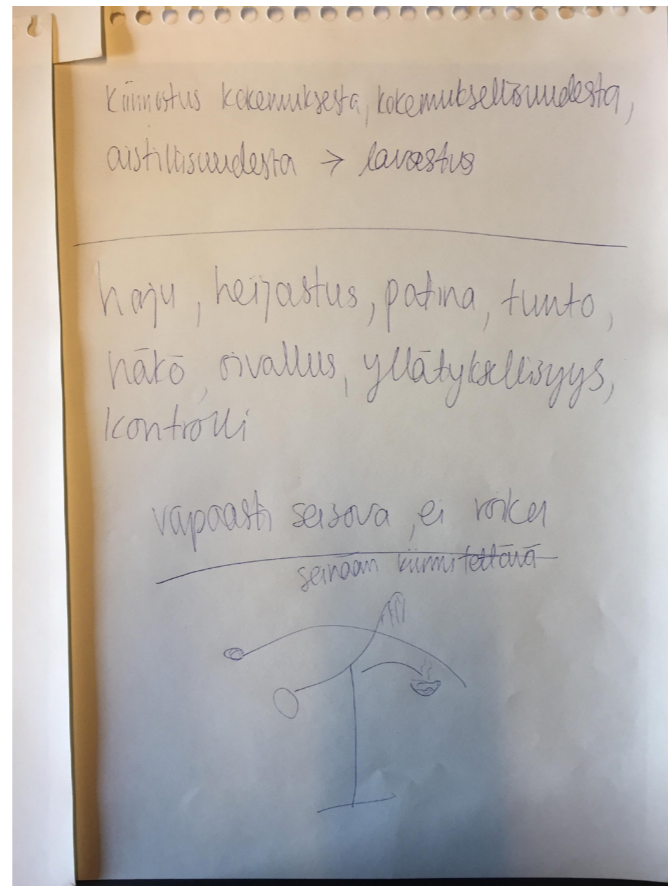 Kiinnostus kokemuksesta, kokemuksellisuudesta,
aistillisuudesta → lavastus
haju, heijastus, patina, tunto,
näkö, oivallus, yllätyksellisyys,
kontrolli
vapaasti seisova, ei roiku
seinään kiinnitettävä